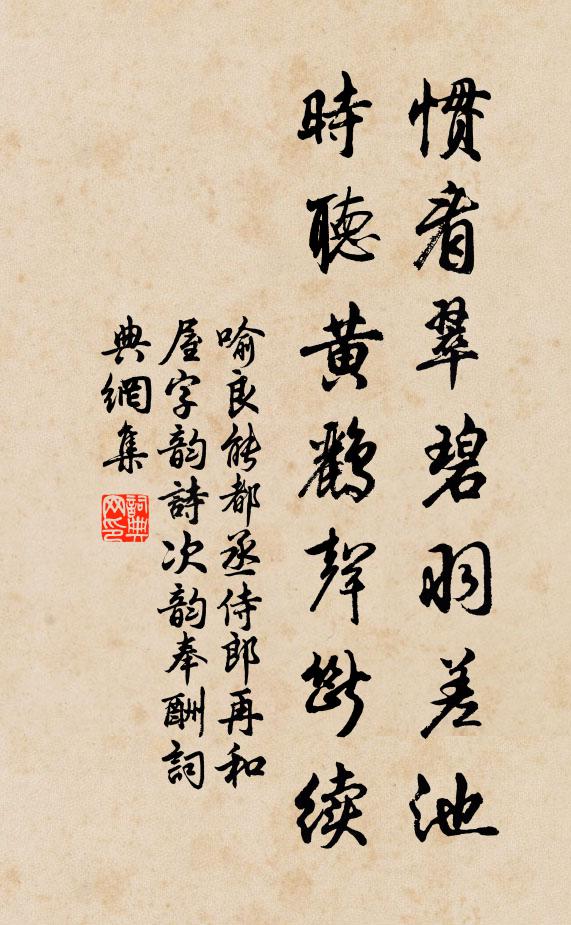 慣看翠碧羽差池
時聽黃鸝聲斷續
喻良能都丞侍郎再和
屋字韵詩次韵奉酬詞
典網集
詞典网印